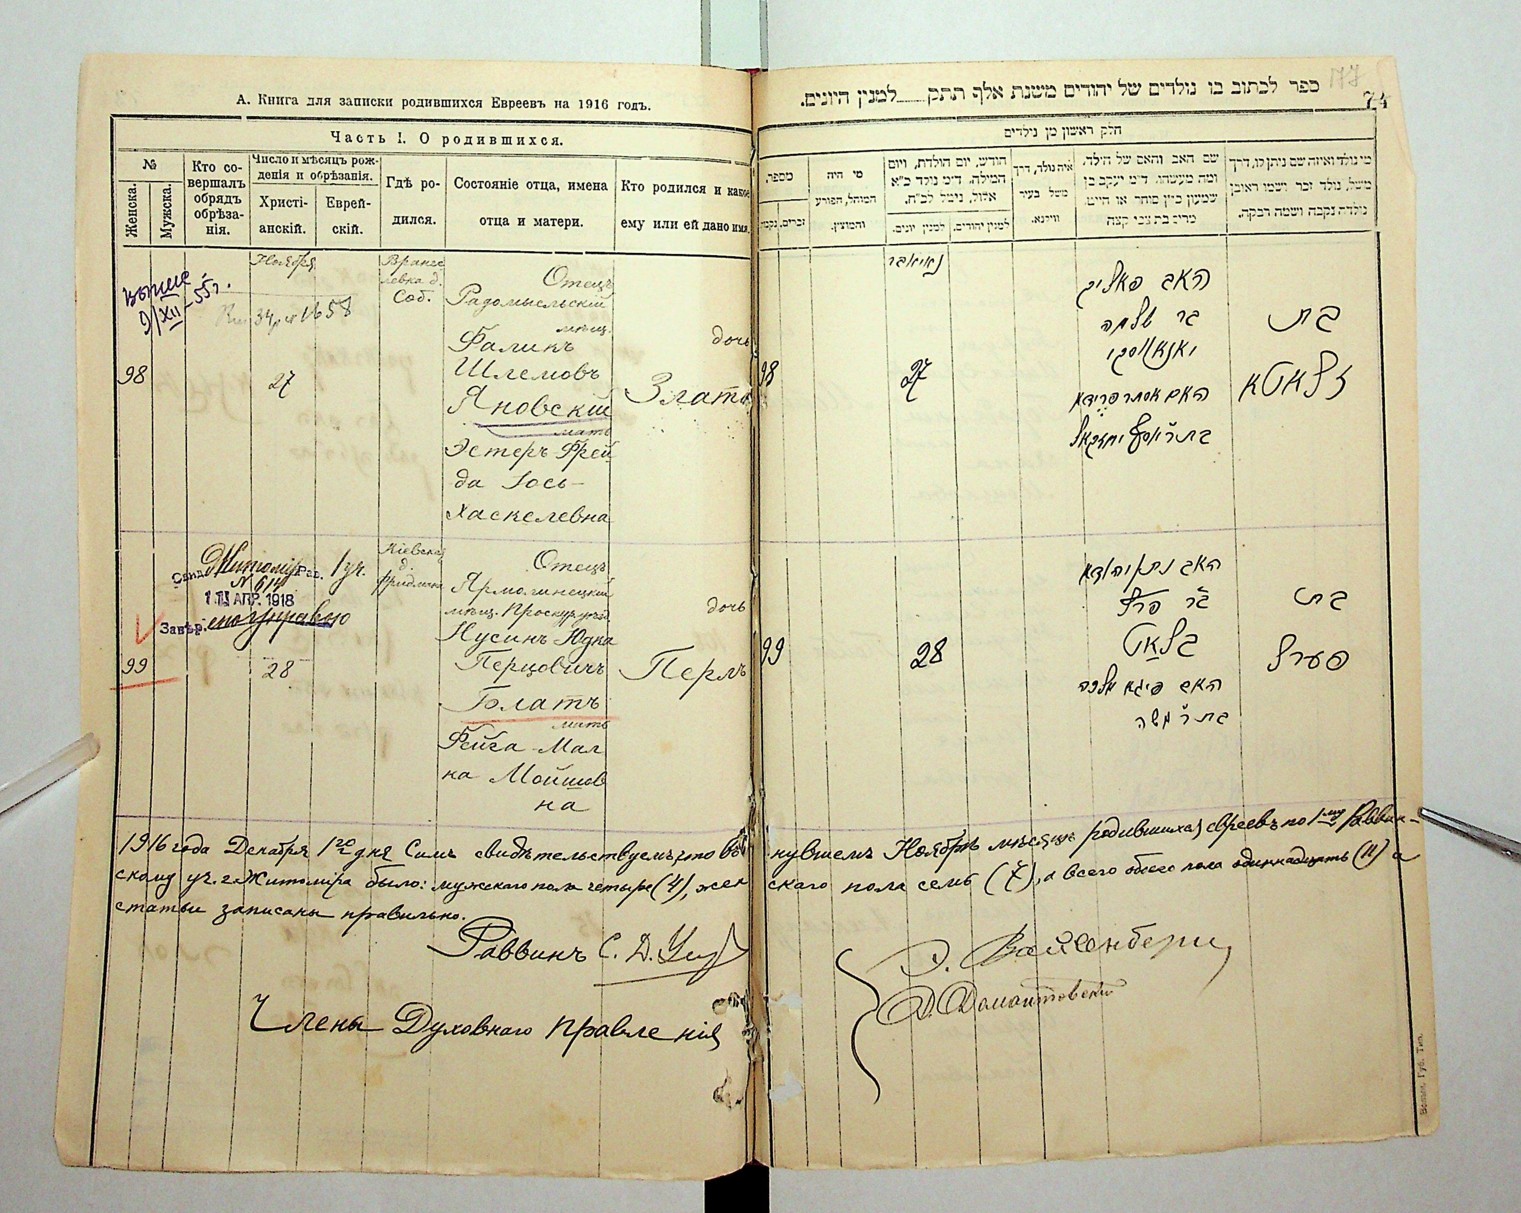 А. Книга для записки родившихся Евреевъ на 1916 годъ.
Часть I. О родившихся.
№
Женска.
Мужска.
Кто со-
вершалъ
обрядъ
обрѣза-
нія.
Число и мѣсяцъ рож-
денія и обрѣзанія.
Христі-
анскій.
Еврей-
скій.
Гдѣ ро-
дился.
Состояніе отца, имена
отца и матери.
Кто родился и какое
ему или ей дано имя.
9/XII-55г.
Ноября
98
27
Отецъ
Радомысльскій
мѣщ.
Фаликъ
Шлемовъ
Яновскій
мать
Эстеръ Фрей-
да Іось-
Хаскелевна
дочь
Злата
Житомір. Рав. 1 уч.
№ 614
11 АПР. 1918
Завѣр.
99
28
Кіевская
Отецъ
Ярмолинецкій
мѣщ. Проскур. у.
Нусинъ Юдка
Перцовичъ
Блатъ
мать
Фейга-Мал
ка Мойшов
на
дочь
Перль
ספר לכתוב בו נולדים של יהודים משנת אלף תתק למנין היונים.
74
חלק ראשון מן נולדים
מספר.
זכרים.
נקבה
מי היה
המוהל, הפורע
והמוצץ.
חודש, יום הולדת, ויום
המילה. ד״מ נולד כ״א
אלול, נימל לכ״ח.
למנין יונים.
למנין יהודים.
איה נולד, דרך
משל בעיר
ווילנא.
שם האב והאם של הילד,
ומה מעשהו. ד״מ יעקב בן
שמעון כהן סוחר או חייט.
מרים בת צבי קצה
מי נולד ואיזה שם ניתן לו, דרך
משל, נולד זכר ושמו ראובן
נולדה נקבה ושמה רבקה.
נאיאבר
98
27
האב פאליק
בר שלמה
יאנאווסקי
האם אסתר פריידא
בת ר' יוסף יחזקאל
בת
זלאטא
99
28
האב נתן יהודא
בר פרץ
בלאט
האם פייגא מלכה
בת ר' משה
בת
פערל
1916 года Декабря 1го дня Симъ свидѣтельствуемъ, что въ минувшемъ Ноябрѣ мѣсяцѣ родившихся евреевъ по 1му Раввин-
скому уч. г. Житоміра было: мужскаго пола четыре (4), женскаго пола семь (7), а всего обоего пола одиннадцать (11) а
статьи записаны правильно.
Раввинъ С. Д.
Члены Духовнаго правленія
Вайсенбергъ
Д. Домонтовскій
Волын. Губ. Тип.